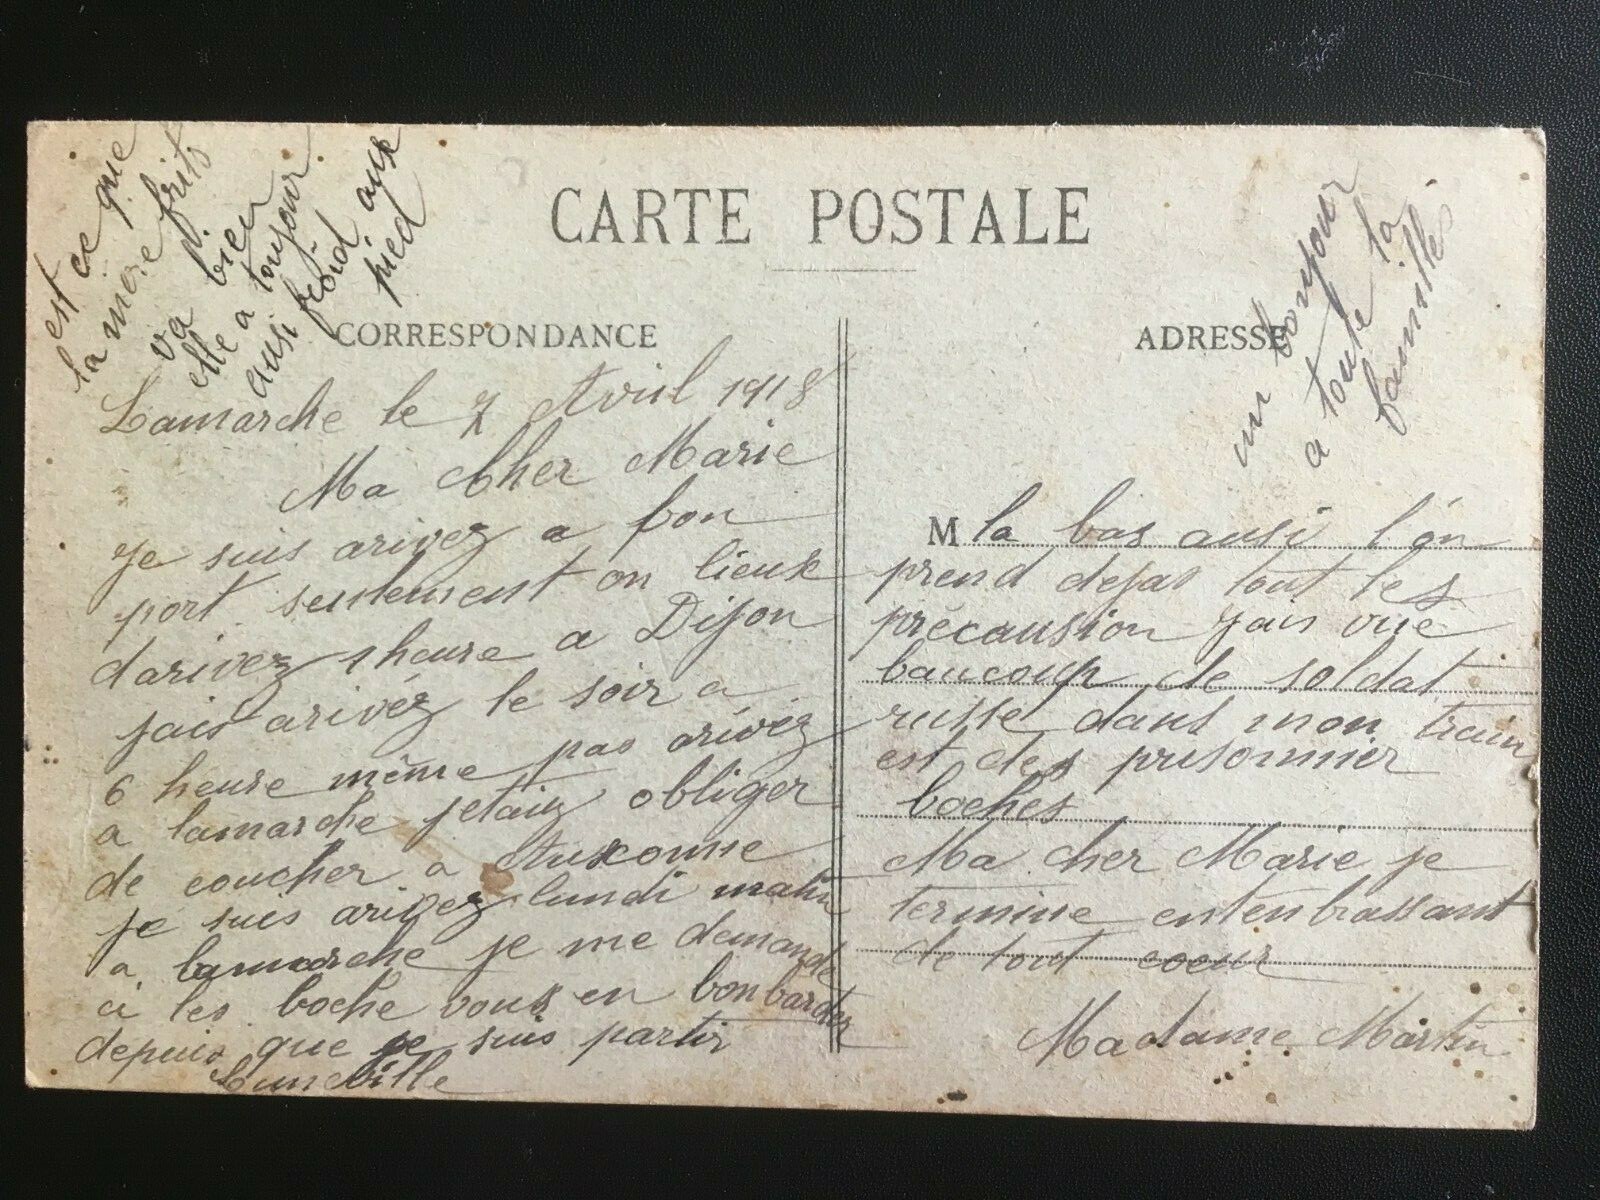 CARTE POSTALE
CORRESPONDANCE
ADRESSE
est ce que
la mere frits
va bien
elle a toujour
ausi froid aux
pied
Lamarche le 7 Avril 1918
Ma Cher Marie
je suis arivez a bon
port seulement on lieux
darivez 1 heure a Dijon
jais arivéz le soir a
6 heure même pas arivéz
a lamarche jetaiz obliger
de coucher a Auxonne
je suis arivez lundi matin
a lamarche je me demande
ci les boche vous en bonbarder
depuis que je suis partir
Luneville
un bonjour
a toute la
familles
M la bas ausi l'on
prend dejas tout les
précausion jais vue
baucoup de soldat
russe dans mon train
est des prisonnier
boches
Ma cher Marie je
termine entenbrassant
de tout coeur
Madame Martin